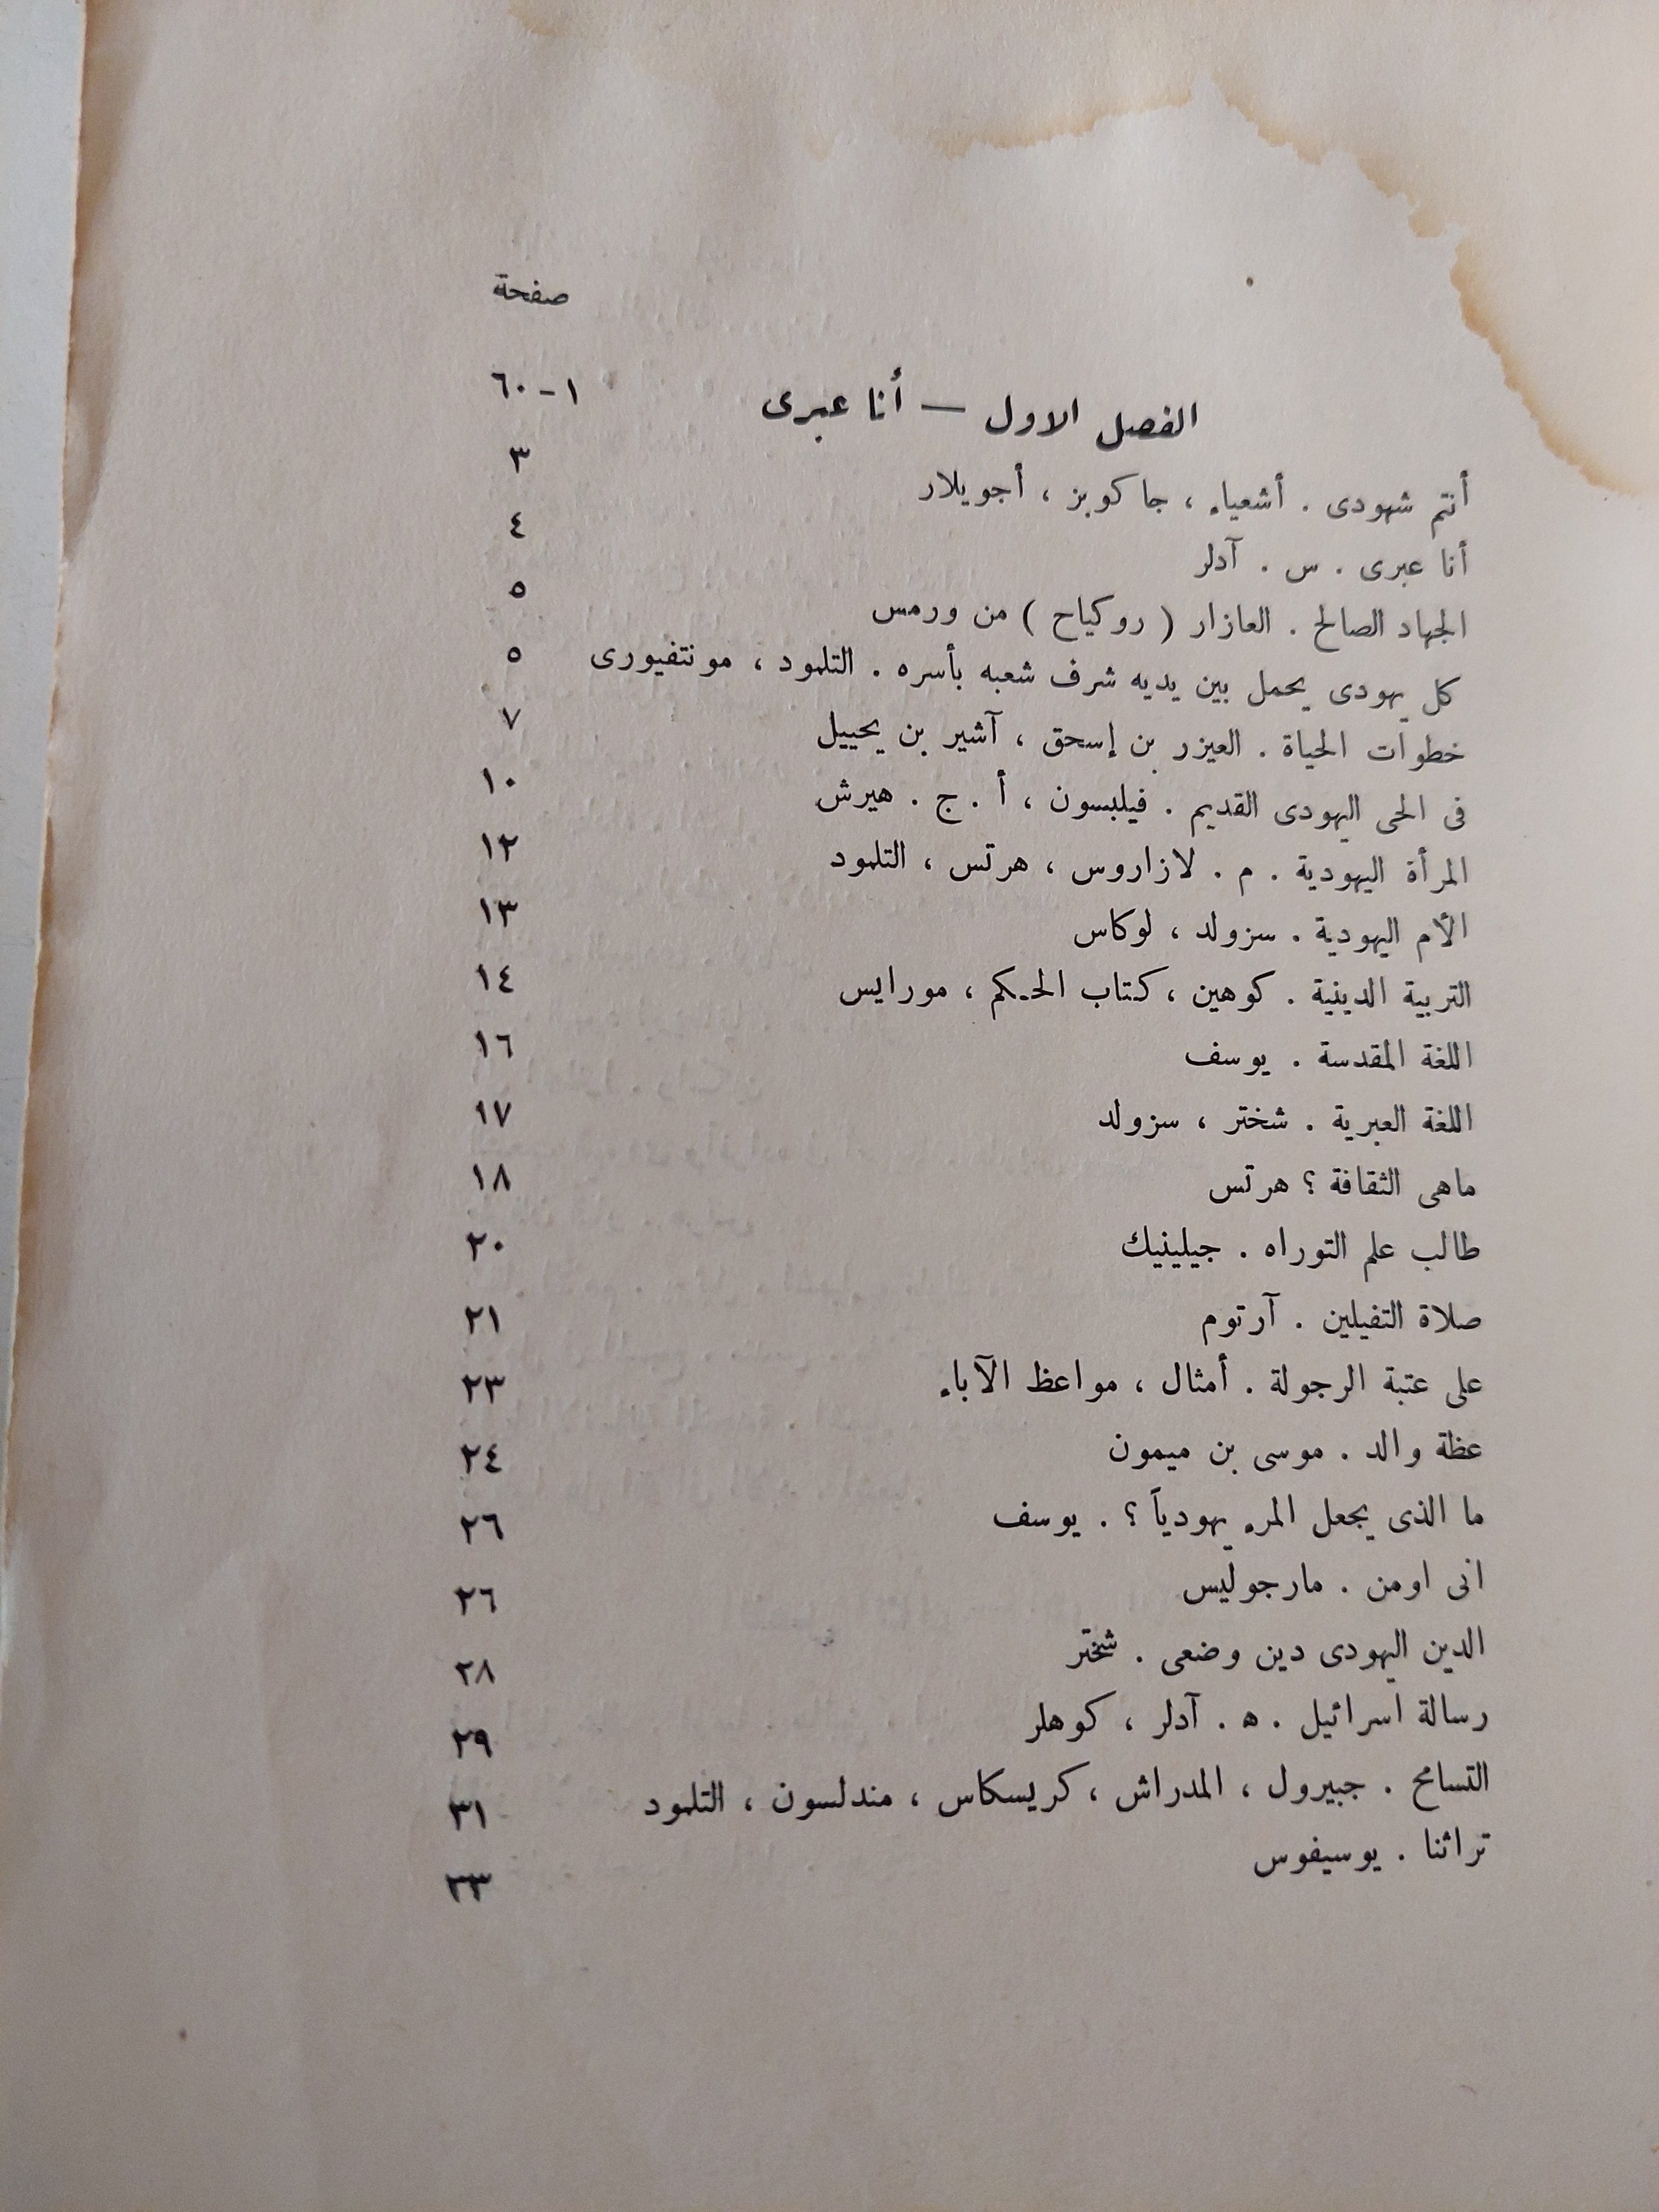 صفحة
الفصل الاول — أنا عبرى ١ - ٦٠
أنتم شهودى . أشعياء ، جاكوبز ، أجويلار ٣
أنا عبرى . س . آدلر ٤
الجهاد الصالح . العازار ( روكياح ) من ورمس ٥
كل يهودى يحمل بين يديه شرف شعبه بأسره . التلمود ، مونتفيورى ٥
خطوات الحياة . العيزر بن إسحق ، آشير بن يحييل ٧
فى الحى اليهودى القديم . فيلبسون ، أ . ج . هيرش ١٠
المرأة اليهودية . م . لازاروس ، هرتس ، التلمود ١٢
الأم اليهودية . سزولد ، لوكاس ١٣
التربية الدينية . كوهين ، كتاب الحكم ، مورايس ١٤
اللغة المقدسة . يوسف ١٦
اللغة العبرية . شختر ، سزولد ١٧
ماهى الثقافة ؟ هرتس ١٨
طالب علم التوراه . جيلينيك ٢٠
صلاة التفيلين . آرتوم ٢١
على عتبة الرجولة . أمثال ، مواعظ الآباء ٢٣
عظة والد . موسى بن ميمون ٢٤
ما الذى يجعل المرء يهودياً ؟ . يوسف ٢٦
انى اومن . مارجوليس ٢٦
الدين اليهودى دين وضعى . شختر ٢٨
رسالة اسرائيل . ه . آدلر ، كوهلر ٢٩
التسامح . جبيرول ، المدراش ، كريسكاس ، مندلسون ، التلمود ٣١
تراثنا . يوسيفوس ٣٣